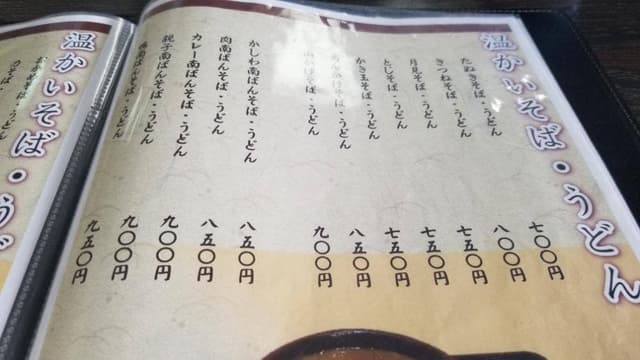 温かいそば・うどん
たぬきそば・うどん
七〇〇円
きつねそば・うどん
八〇〇円
月見そば・うどん
七五〇円
とじそば・うどん
七五〇円
かき玉そば・うどん
七五〇円
そば・うどん
八五〇円
そば・うどん
九〇〇円
かしわ南ばんそば・うどん
八五〇円
肉南ばんそば・うどん
八五〇円
カレー南ばんそば・うどん
九〇〇円
親子南ばんそば・うどん
九〇〇円
南ばんそば・うどん
九五〇円
温かいそば・うど